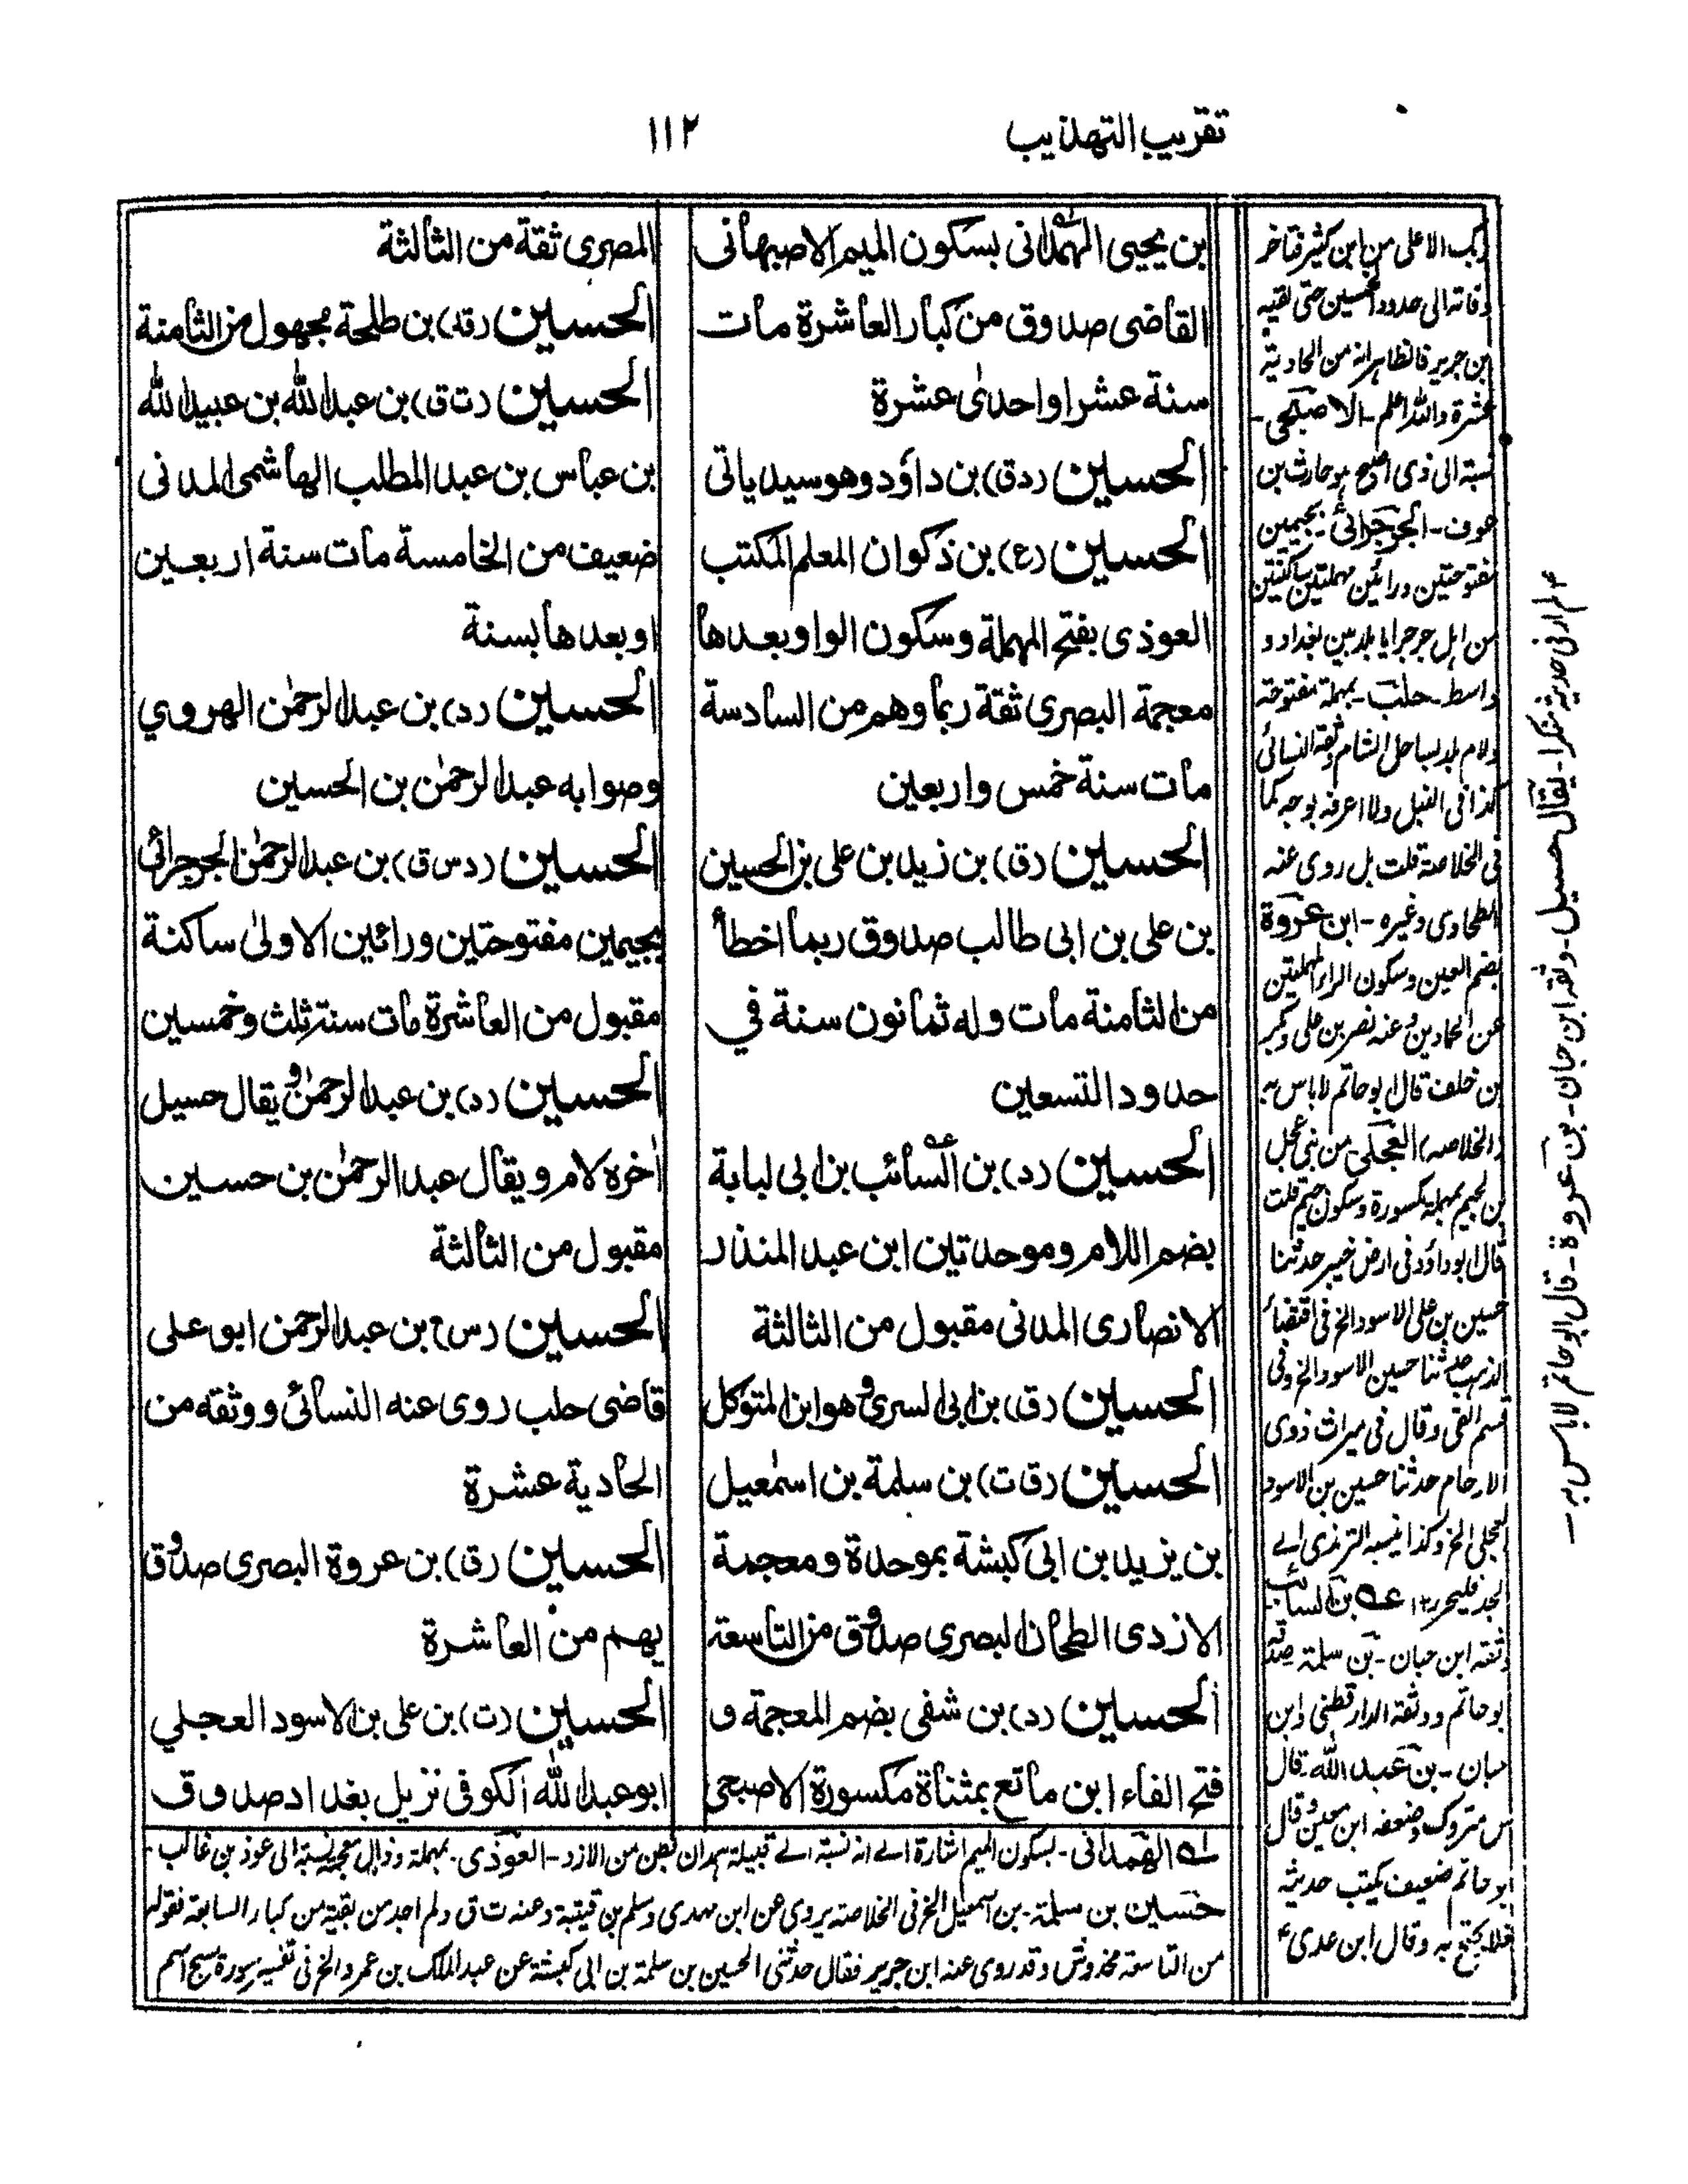 تقريب التهذيب
١١٢
بن يحيى الهمدانى بسكون الميم الاصبهانى
القاضى صدوق من كبار العاشرة مات
سنة عشر او احدىٰ عشرة
الحسين (دق) بن داؤد وهو سيد ياتى
الحسين (ع) بن ذكوان المعلم المكتب
العوذى بفتح المهملة وسكون الواو بعدها
معجمة البصرى ثقة ربما وهم من السادسة
مات سنة خمس واربعين
الحسين (ق) بن زيد بن على بن الحسين
بن على بن ابى طالب صدوق ربما اخطأ
من الثامنة مات وله ثمانون سنة في
حدود التسعين
الحسين (د) بن السائب بن ابى لبابة
بضم اللام وموحدتين ابن عبد المنذر
الانصارى المدنى مقبول من الثالثة
الحسين (ق) بن ابى السري هو ابن المتوكل
الحسين (ق ت) بن سلمة بن اسمٰعيل
بن يزيد بن ابى كبشة بموحدة ومعجمة
الازدى الطحان البصرى صدوق من التاسعة
الحسين (د) بن شفى بضم المعجمة و
فتح الفاء ابن ماتع بمثناة مكسورة الاصبحى
المصرى ثقة من الثالثة
الحسين (قد) بن طلحة مجهول من الثامنة
الحسين (ت ق) بن عبد الله بن عبيد الله
بن عباس بن عبد المطلب الهاشمى المدنى
ضعيف من الخامسة مات سنة اربعين
او بعدها بسنة
الحسين (د) بن عبد الرحمٰن الهروي
وصوابه عبد الرحمٰن بن الحسين
الحسين (د س ق) بن عبد الرحمٰن الجرجرائى
بجيمين مفتوحتين ورائين الاولىٰ ساكنة
مقبول من العاشرة مات سنة ثلث وخمسين
الحسين (د) بن عبد الرحمٰن ويقال حسيل
اٰخره لام ويقال عبد الرحمٰن بن حسين
مقبول من الثالثة
الحسين (س) بن عبد الرحمن ابو على
قاضى حلب روى عنه النسائى ووثقه من
الحادية عشرة
الحسين (ق) بن عروة البصرى صدوق
يهم من العاشرة
الحسين (ت) بن على بن الاسود العجلي
ابو عبد الله الكوفى نزيل بغداد صدوق
الهمدانى - بسكون الميم اشارة الے انه نسبة الے قبيلة همدان بطن من الازد - العوذى - بمهملة وذال معجمة نسبة الى عوذ بن غالب -
حسين بن سلمة - بن اسمعيل الخ فى الخلاصة يروى عن ابن مهدى وسلم بن قتيبة وعنه ت ق ولم اجد من بقية من كبار السابعة فقوله
من التاسعة مخدوش وقد روى عنه ابن جرير فقال حدثنى الحسين بن سلمة بن ابى كبشة عن عبد الملك بن عمرو الخ فى تفسير سورة سبح اسم
ربك الاعلى من ابن كثير فتاخر
وفاته الى حدود الخمسين حتى لقيه
ابن جرير فالظاهر انه من الحادية
عشرة والله اعلم - الاصبحى -
نسبة الى ذى اصبح هو حارث بن
عوف - الجرجرائى - بجيمين
مفتوحتين ورائين مهملتين ساكنتين
من اهل جرجرايا بلد بين بغداد و
واسط - حلب - بمهملة مفتوحة
ولام بلد بساحل الشام وثقه النسائى
كذا فى النبل ولا اعرفه بوجه كما
فى الخلاصة قلت بل روى عنه
الطحاوى وغيره - ابن عروة
بضم العين وسكون الراء المهملتين
عن الحمادين وعنه نصر بن على وبكر
بن خلف قال ابو حاتم لا باس به
(الخلاصه) العجلى - من بنى عجل
بن لجيم بمهملة مكسورة وسكون جيم قلت
قال ابو داؤد فى ارض خيبر حدثنا
حسين بن على الاسود الخ فى اقتضاء
الذهب حدثنا حسين الاسود الخ وفى
قسم الفئ وقال فى ميراث ذوى
الارحام حدثنا حسين بن الاسود
العجلى الخ وكذا نسبه الترمذى الے
الجد فليحرر ١٢ بن السائب
وثقه ابن حبان - بن سلمة صدقه
ابو حاتم ووثقه الدارقطنى وابن
حبان - بن عبد الله قال
س متروك وضعفه ابن معين وقال
ابو حاتم ضعيف يكتب حديثه
فلا يحتج به وقال ابن عدى
لم ار فى حديثه منكرا - يقال حسيل - وثقه ابن حبان - بن عروة - قال ابو حاتم لا باس به -